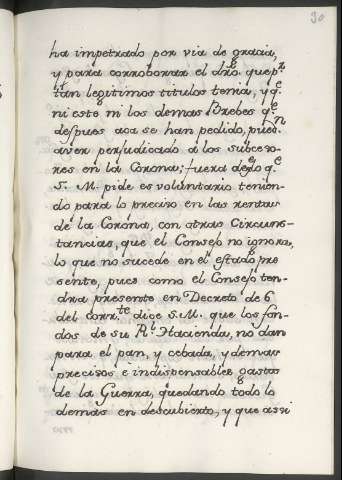 30
ha impetrado por via de gracia,
y para corroborar el dro. que pr.
tan legitimos titulos tenia, y qe.
ni este ni los demas Brebes qe.
despues aca se han pedido, puedn
aver perjudicado à los subceso-
res en la Corona; fuera de qe lo qe.
S. M. pide es voluntario tenien-
do para lo preciso en las rentas
de la Corona, con otras Circuns-
tancias, que el Consejo no ignora,
lo que no sucede en el estado pre
sente, pues como el Consejo ten-
dra presente en Decreto de 6
del corrte. dice S. M. que los fon-
dos de su Rl. Hacienda, no dan
para el pan, y cebada, y demas
precisos è indispensables gastos
de la Guerra, quedando todo lo
demas en descubierto, y que assi